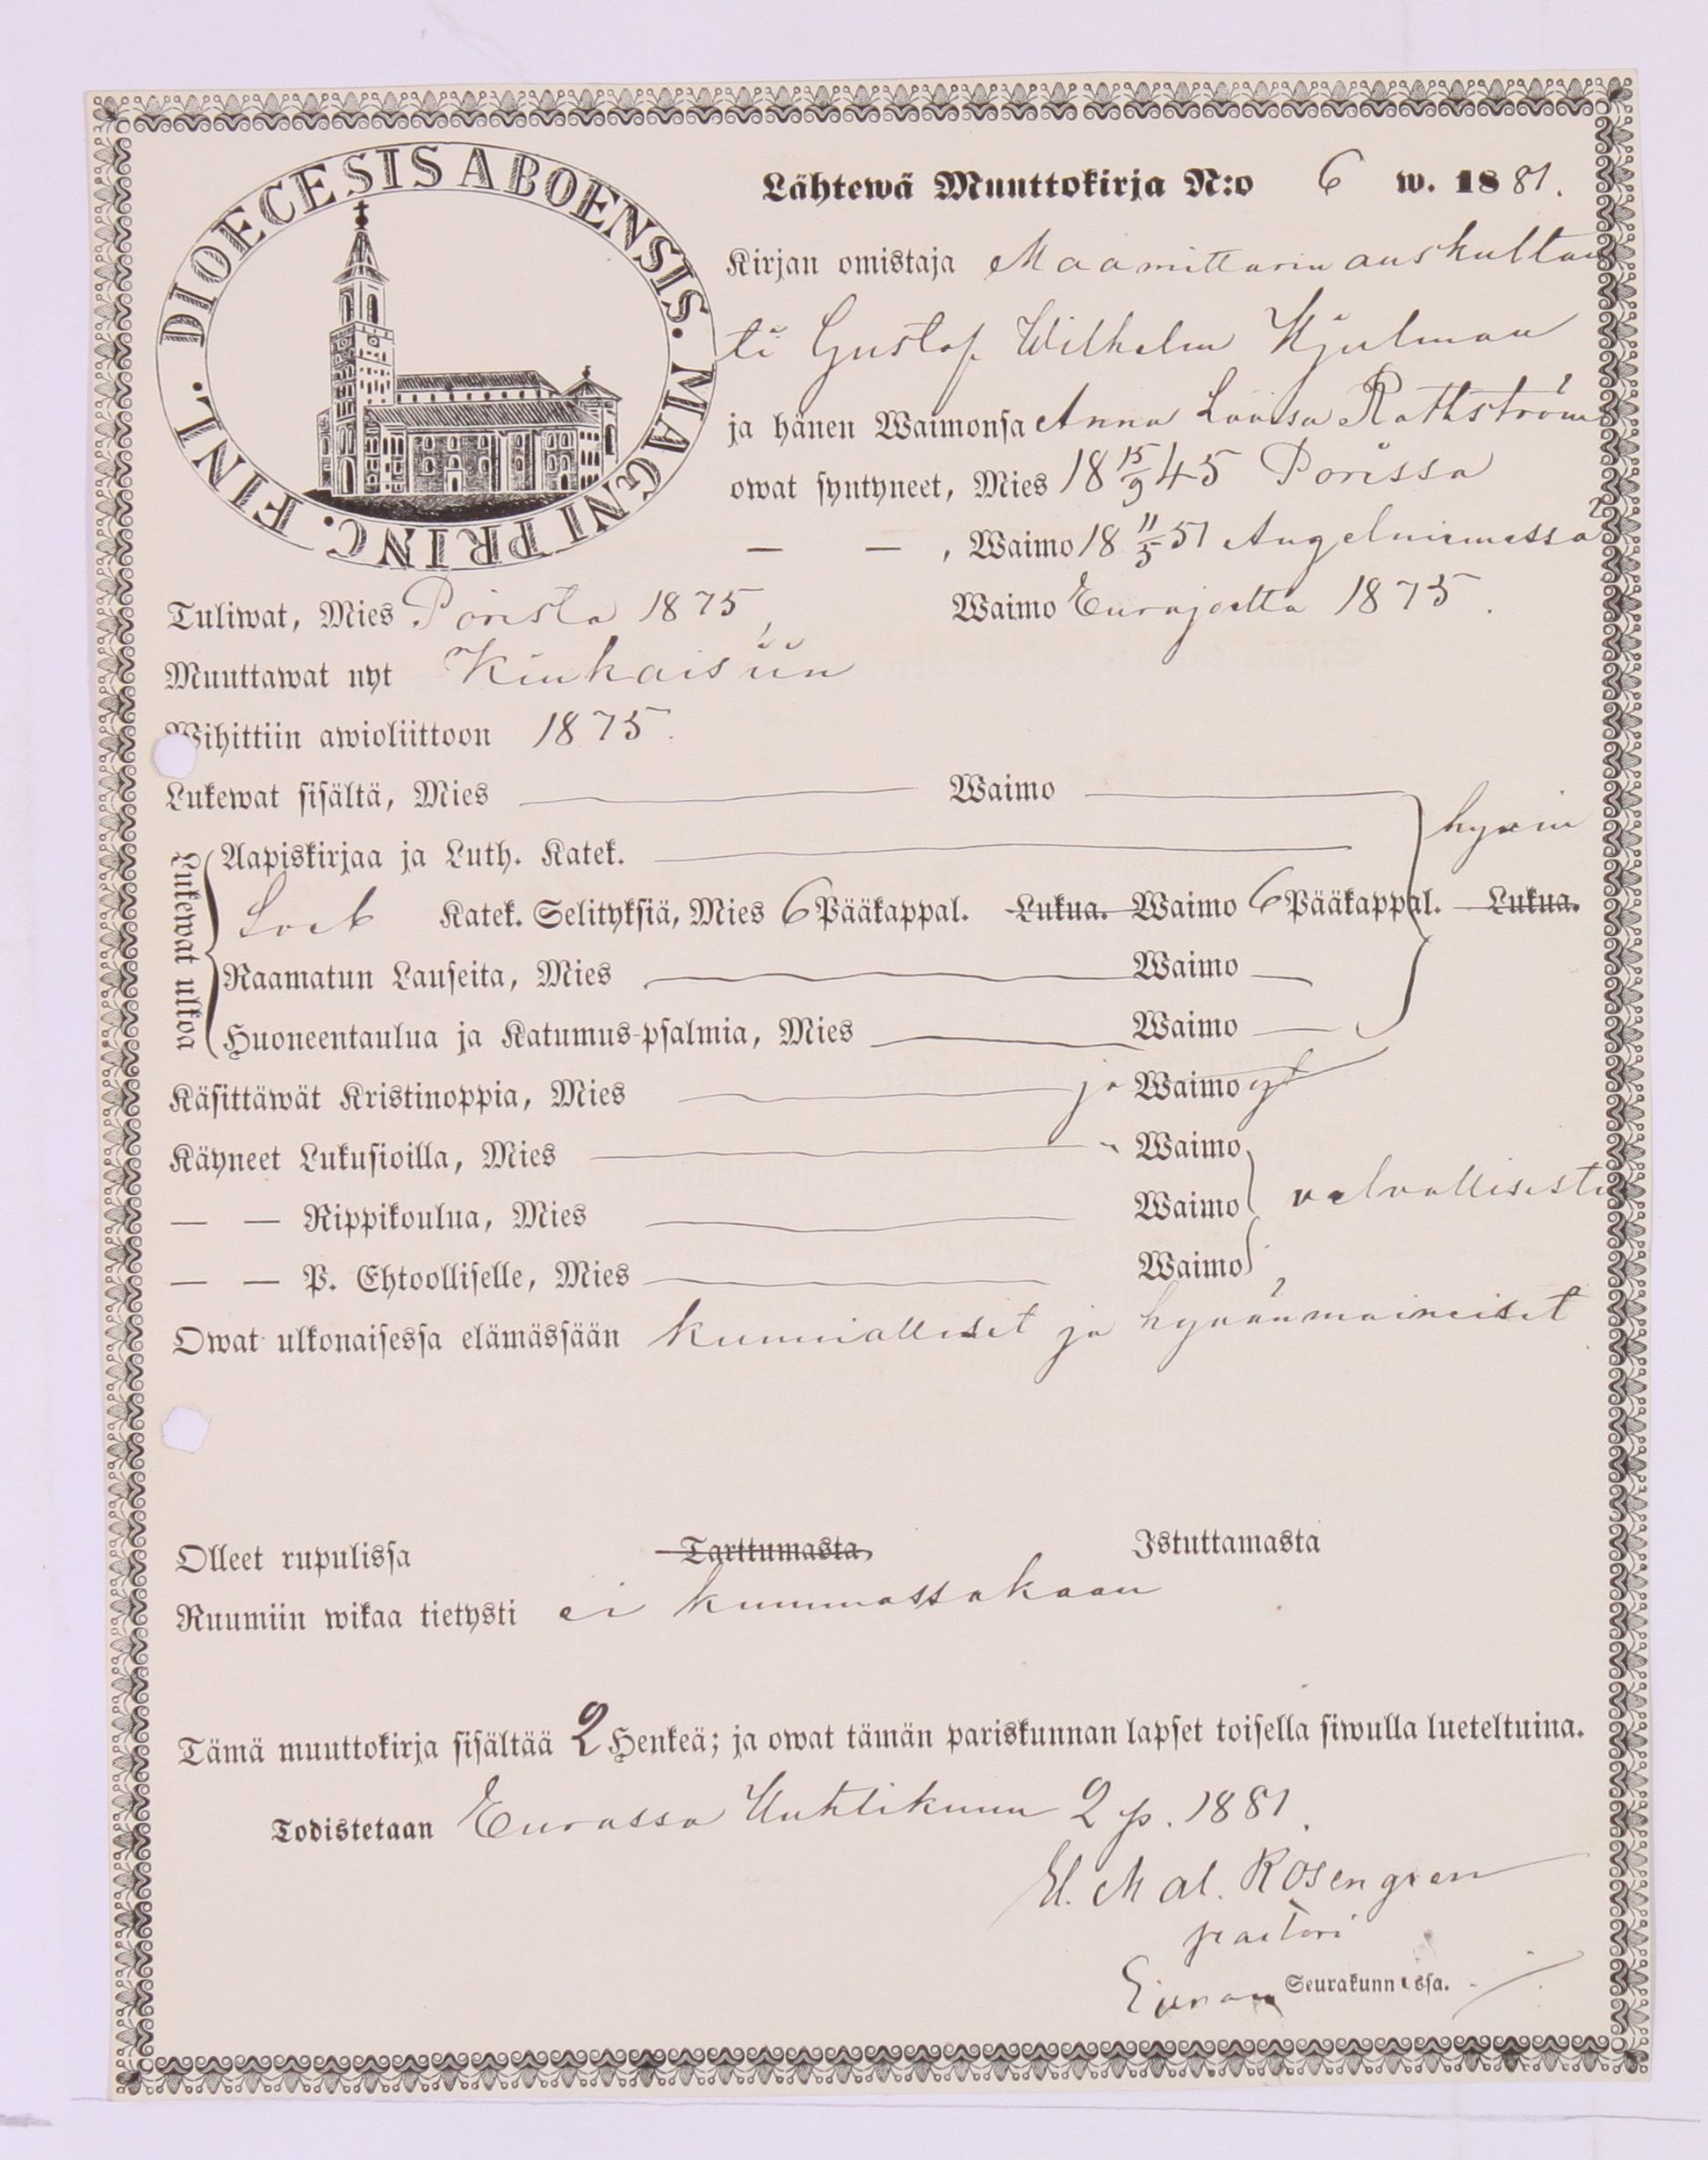 DIOECESIS ABOENSIS. MAGNI PRINC. FINL.
Lähtewä Muuttokirja N:o 6 w. 1881.
Kirjan omistaja Maamittarin auskultan
ti Gustof Wilhelm Hjulman
ja hänen Waimonsa Anna Lovisa Rothström
owat syntyneet, Mies 18 15/9 45 Porissa
— — , Waimo 18 11/5 51 Angelniemessä
Tuliwat, Mies Porista 1875, Waimo Eurajoelta 1875.
Muuttawat nyt Kiukaisiin
Wihittiin awioliittoon 1875.
Lukewat sisältä, Mies Waimo hyvin
Lukewat ulkoa
Aapiskirjaa ja Luth. Katek.
Katek. Selityksiä, Mies 6 Pääkappal. Lukua. Waimo 6 Pääkappal. Lukua.
Raamatun Lauseita, Mies Waimo
Huoneentaulua ja Katumus-psalmia, Mies Waimo
Käsittäwät Kristinoppia, Mies ja Waimo
Käyneet Lukusioilla, Mies Waimo
— — Rippikoulua, Mies Waimo
— — P. Ehtoolliselle, Mies Waimo
Owat ulkonaisessa elämässään kunnialliset ja hyvänmaineiset
Olleet rupulissa Tarttumasta Istuttamasta
Ruumiin wikaa tietysti ei kummassakaan
Tämä muuttokirja sisältää 2 Henkeä; ja owat tämän pariskunnan lapset toisella siwulla lueteltuina.
Todistetaan Eurassa Huhtikuun 2 p. 1881.
Rosengren
pastori
Euran Seurakunnassa.